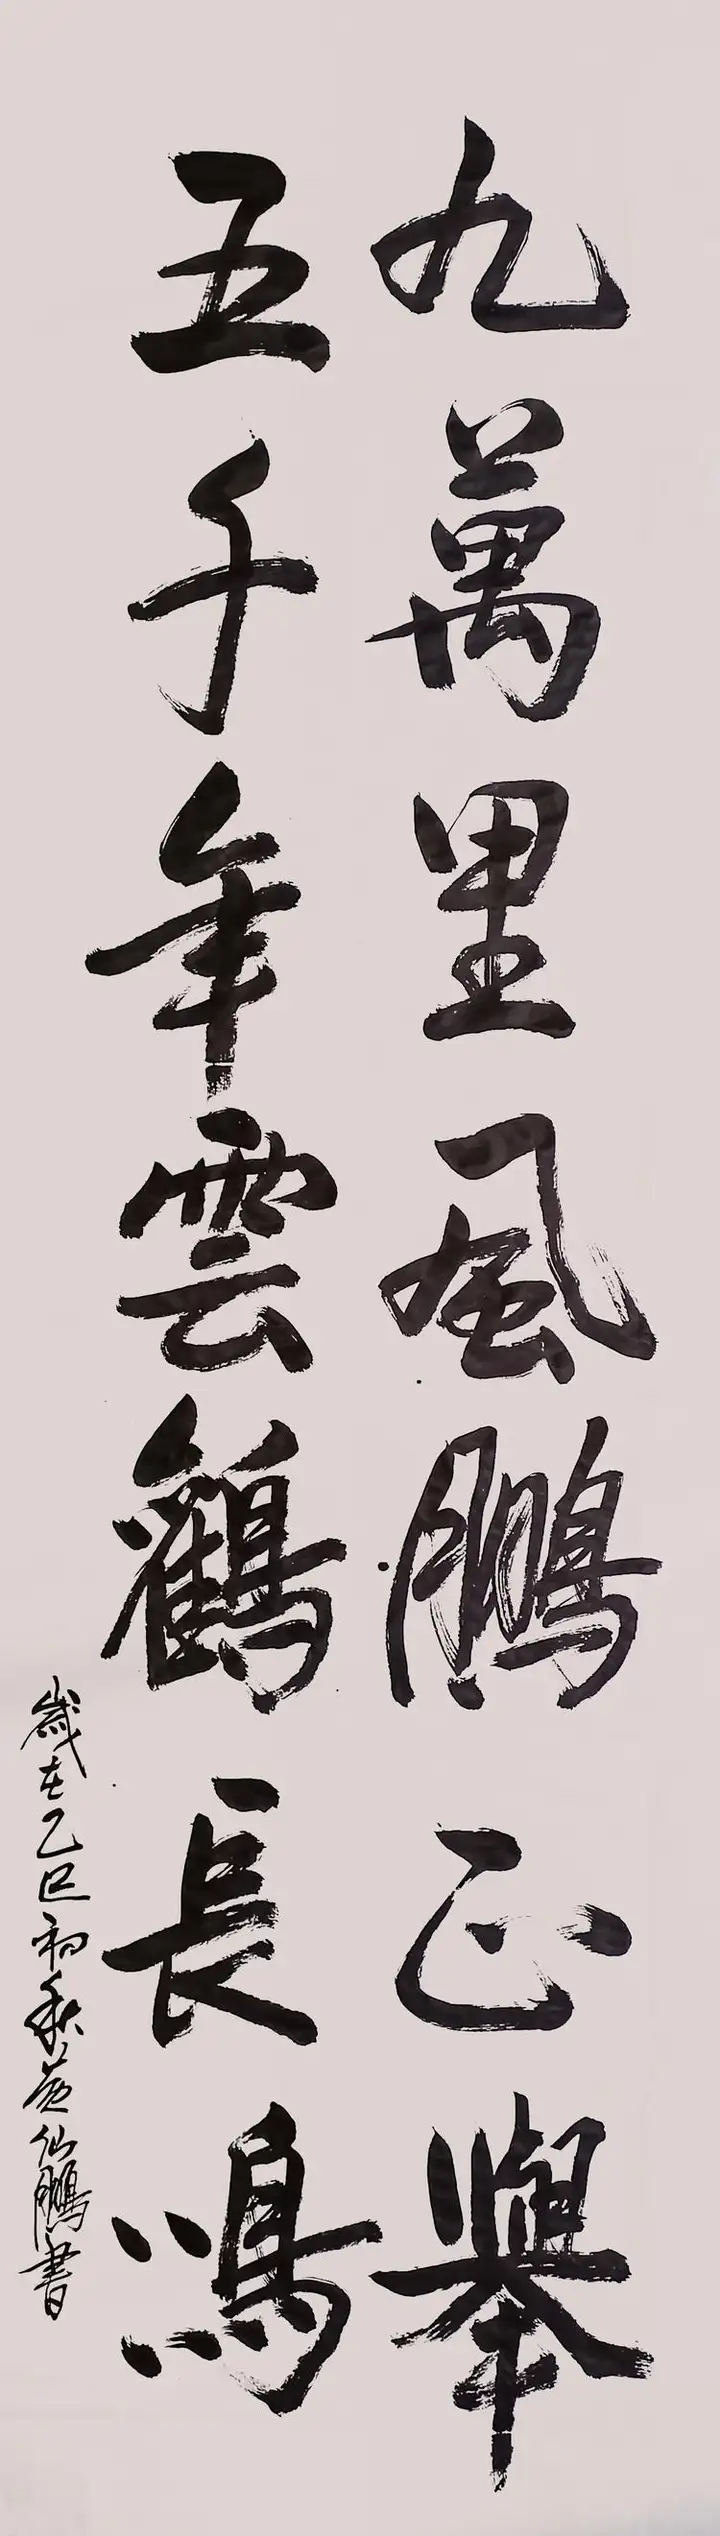 九萬里風鵬正舉
五千年雲鶴長鳴
歲在乙巳初秋黃仙鵬書